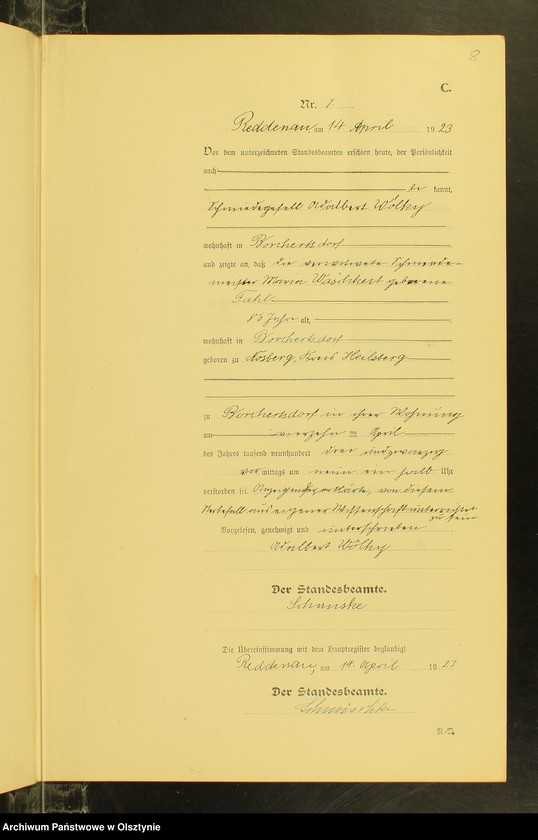 8
C.
Nr. 7
Reddenau, am 14 April 1923
Vor dem unterzeichneten Standesbeamten erschien heute, der Persönlichkeit
nach
be kannt,
Schmiedegesell Adalbert Wölky
wohnhaft in Borchertsdorf
und zeigte an, daß die verwitwete Schmiede-
meister Maria geborene
Fahl
86 Jahre alt,
wohnhaft in Borchertsdorf
geboren zu Nosberg, Kreis Heilsberg
zu Borchertsdorf in ihrer Wohnung
am vierzehn ten April
des Jahres tausend neunhundert drei undzwanzig
vor mittags um neun ein halb Uhr
verstorben sei. Anzeigender erklärte, von diesem
Sterbefall aus eigener Wissenschaft unterrichtet
zu sein
Vorgelesen, genehmigt und unterschrieben
Adalbert Wölky
Der Standesbeamte.
Die Übereinstimmung mit dem Hauptregister beglaubigt
Reddenau, am 14. April 1923
Der Standesbeamte.
Archiwum Państwowe w Olsztynie